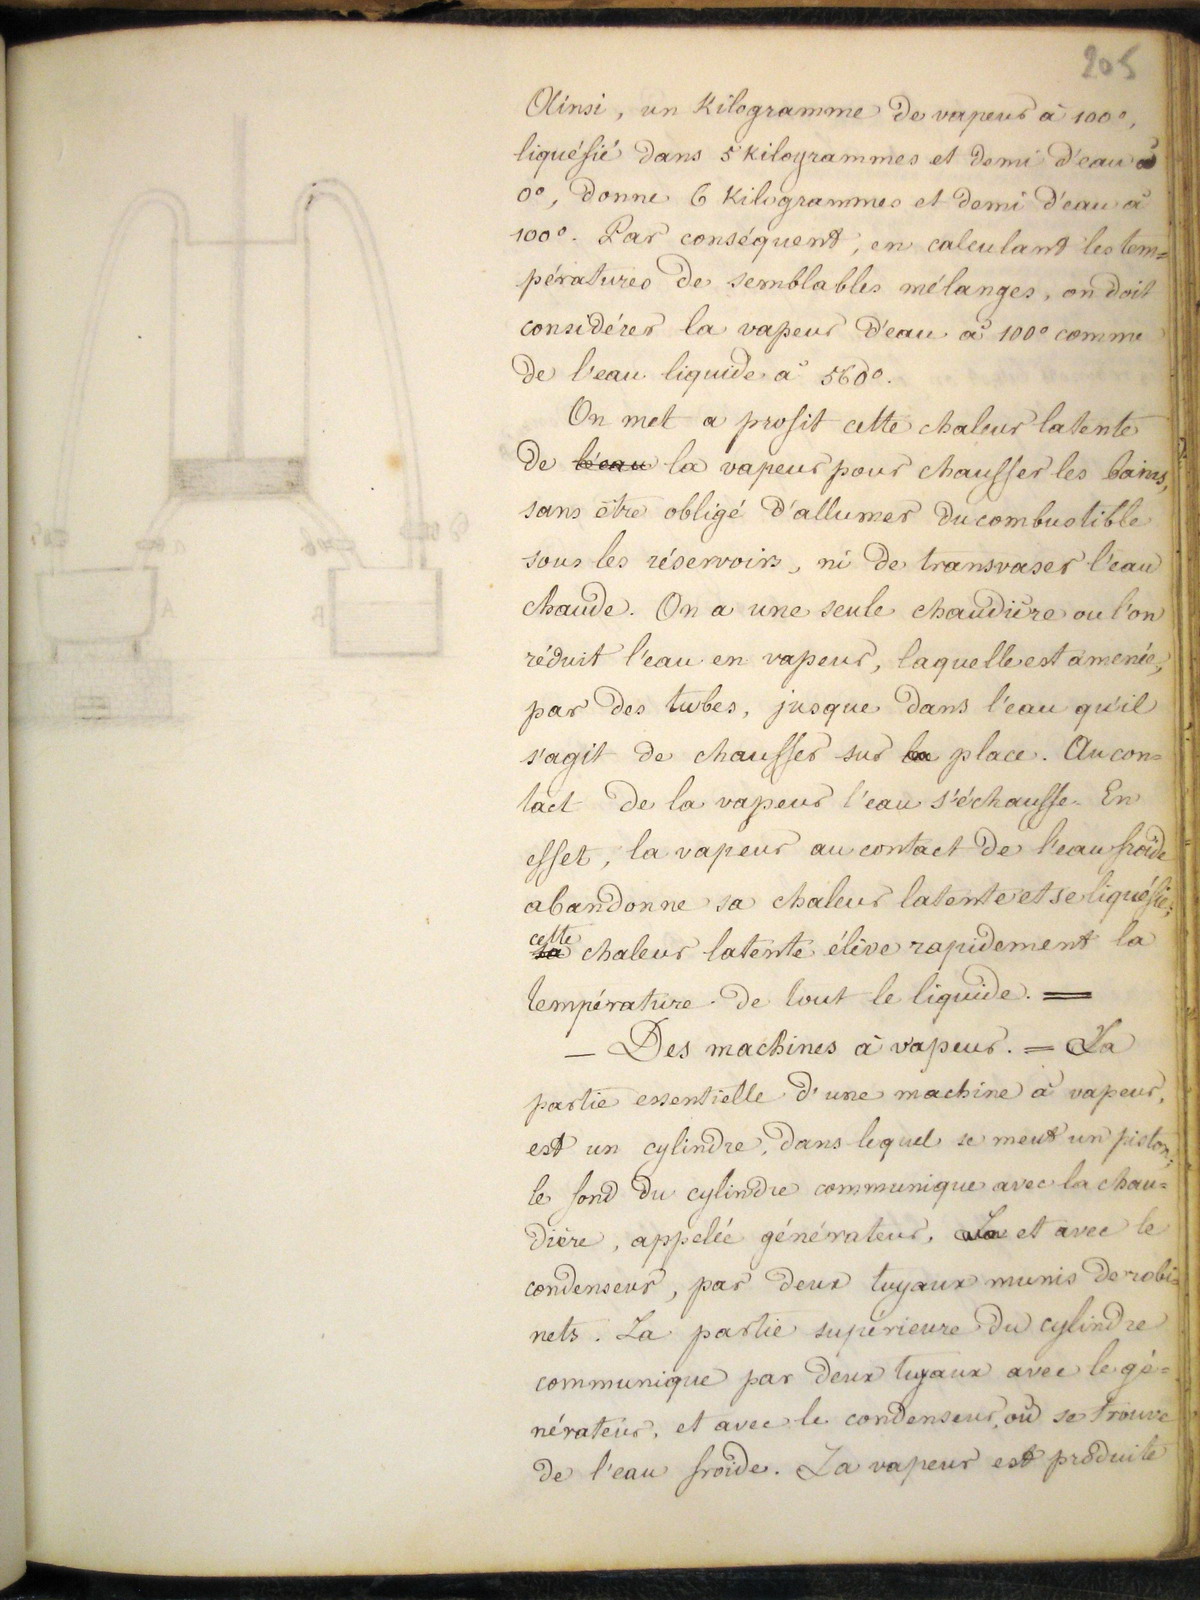 205
Ainsi, un Kilogramme de vapeur à 100°,
liquéfié dans 5 kilogrammes et demi d'eau à
0°, donne 6 Kilogrammes et demi d'eau à
100°. Par conséquent, en calculant les tem=
pératures de semblables mélanges, on doit
considérer la vapeur d'eau à 100° comme
de l'eau liquide à 560°.
On met a profit cette chaleur latente
de l'eau la vapeur pour chauffer les bains,
sans être obligé d'allumer du combustible
sous les réservoirs, ni de transvaser l'eau
chaude. On a une seule chaudière ou l'on
réduit l'eau en vapeur, laquelle est amenée,
par des tubes, jusque dans l'eau qu'il
s'agit de chauffer sur la place. Au con=
tact de la vapeur l'eau s'échauffe. En
effet, la vapeur au contact de l'eau froide
abandonne sa chaleur latente et se liquéfie;
cette
sa chaleur latente élève rapidement la
température de tout le liquide. =
— Des machines à vapeur. = La
partie essentielle d'une machine à vapeur,
est un cylindre, dans lequel se meut un piston;
le fond du cylindre communique avec la chau=
dière, appelée générateur, et avec le
condenseur, par deux tuyaux munis de robi=
nets. La partie supérieure du cylindre
communique par deux tuyaux avec le gé=
nérateur, et avec le condenseur, où se trouve
de l'eau froide. La vapeur est produite